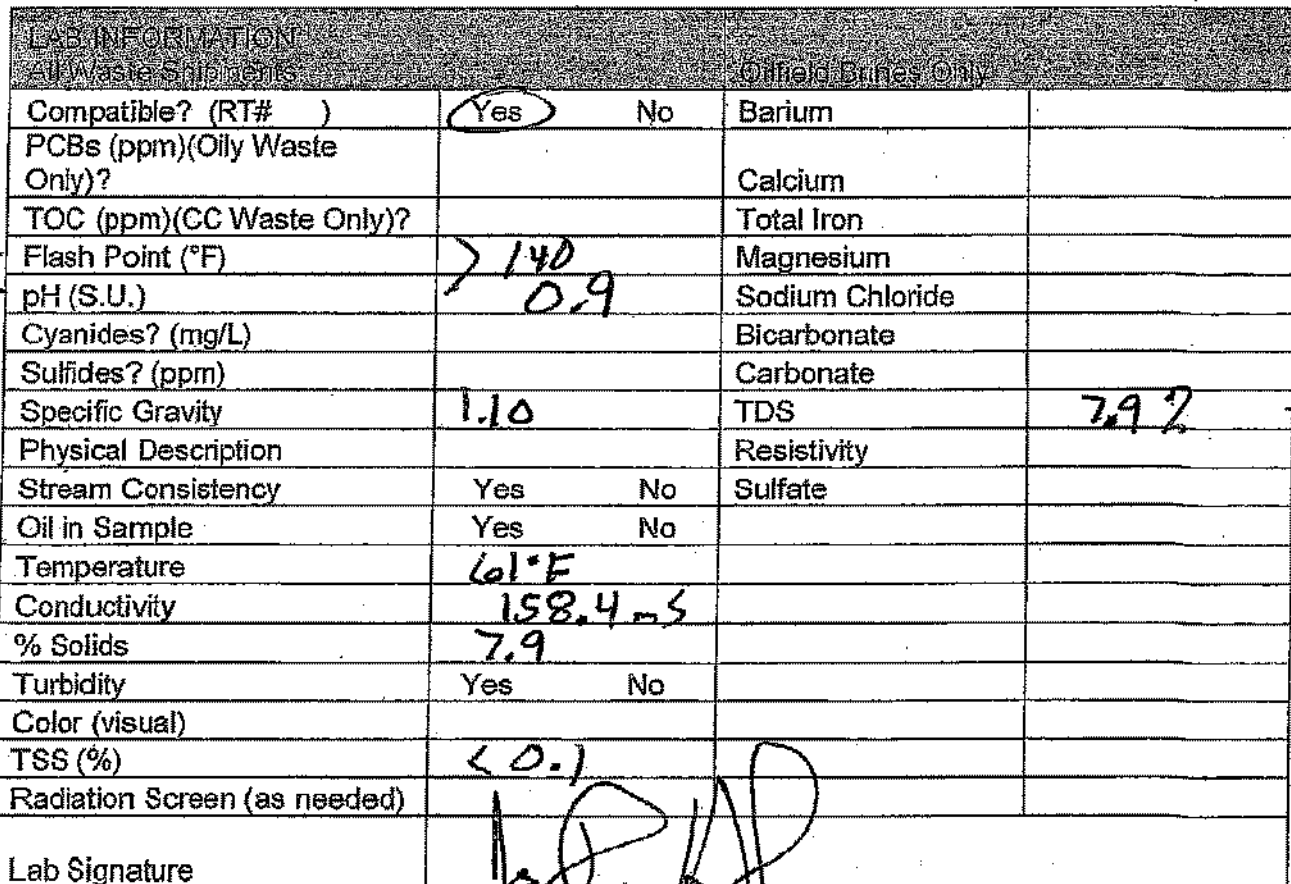 LAB INFORMATION
All Waste Shipments Oilfield Brines Only
Compatible? (RT# ) Yes No Barium
PCBs (ppm)(Oily Waste
Only)? Calcium
TOC (ppm)(CC Waste Only)? Total Iron
Flash Point (°F) > 140 Magnesium
pH (S.U.) 0.9 Sodium Chloride
Cyanides? (mg/L) Bicarbonate
Sulfides? (ppm) Carbonate
Specific Gravity 1.10 TDS 7.9
Physical Description Resistivity
Stream Consistency Yes No Sulfate
Oil in Sample Yes No
Temperature 61°F
Conductivity 158.4 mS
% Solids 7.9
Turbidity Yes No
Color (visual)
TSS (%) < 0.1
Radiation Screen (as needed)
Lab Signature